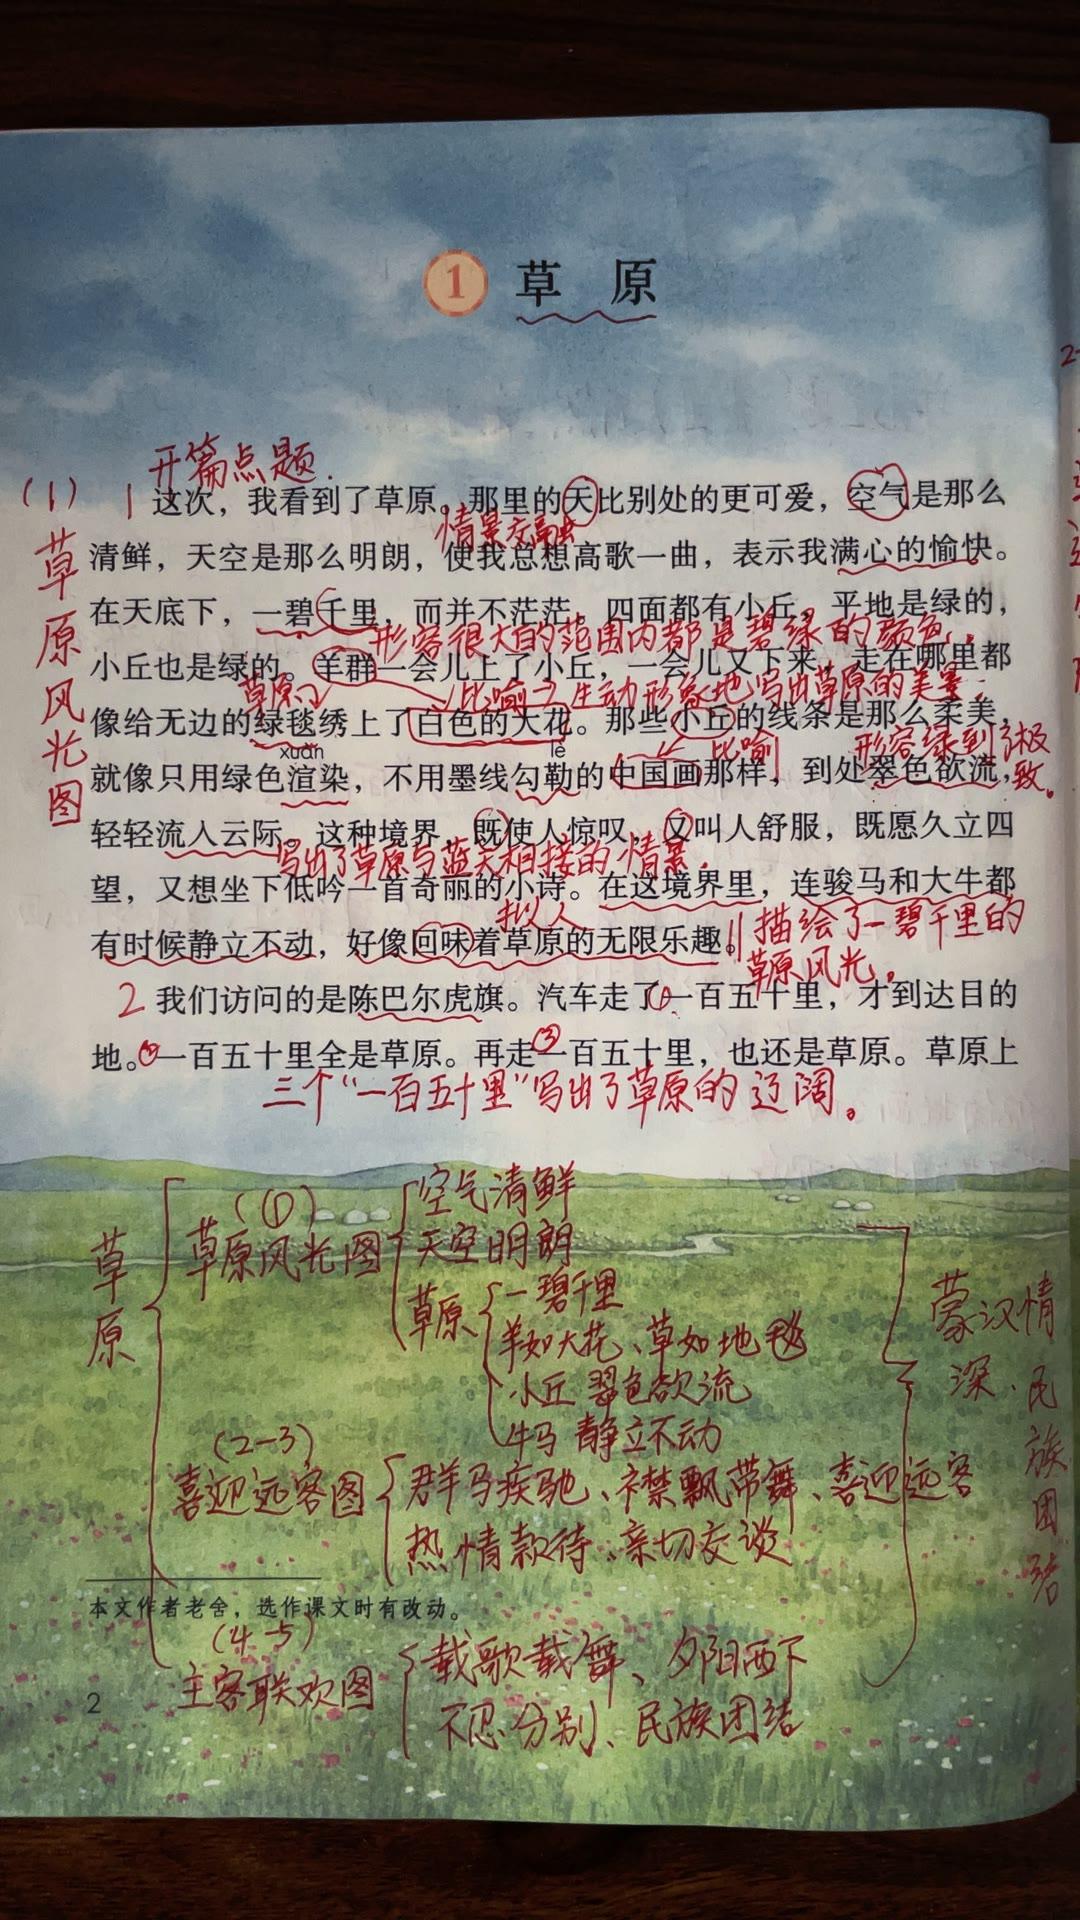 1 草 原
开篇点题.
(1)
草原风光图
1 这次，我看到了草原。那里的天比别处的更可爱，空气是那么
情景交融
清鲜，天空是那么明朗，使我总想高歌一曲，表示我满心的愉快。
在天底下，一碧千里，而并不茫茫。四面都有小丘，平地是绿的，
形容很大的范围内都是碧绿的颜色.
小丘也是绿的。羊群一会儿上了小丘，一会儿又下来，走在哪里都
草原
比喻 生动形象地写出草原的美景.
像给无边的绿毯绣上了白色的大花。那些小丘的线条是那么柔美，
xuàn lè
比喻
形容绿到了极致。
就像只用绿色渲染，不用墨线勾勒的中国画那样，到处翠色欲流，
轻轻流入云际。这种境界，既使人惊叹，又叫人舒服，既愿久立四
写出了草原与蓝天相接的情景.
望，又想坐下低吟一首奇丽的小诗。在这境界里，连骏马和大牛都
拟人
有时候静立不动，好像回味着草原的无限乐趣。
描绘了一碧千里的
草原风光。
2 我们访问的是陈巴尔虎旗。汽车走了①一百五十里，才到达目的
地。②一百五十里全是草原。再走③一百五十里，也还是草原。草原上
三个“一百五十里”写出了草原的辽阔。
草原
(①)
草原风光图
空气清鲜
天空明朗
草原
一碧千里
羊如大花、草如地毯
小丘 翠色欲流
牛马 静立不动
(2-3)
喜迎远客图
群马疾驰、襟飘带舞、喜迎远客
热情款待、亲切交谈
本文作者老舍，选作课文时有改动。
(4-5)
主客联欢图
载歌载舞、夕阳西下
不忍分别、民族团结
蒙汉情深、民族团结
2